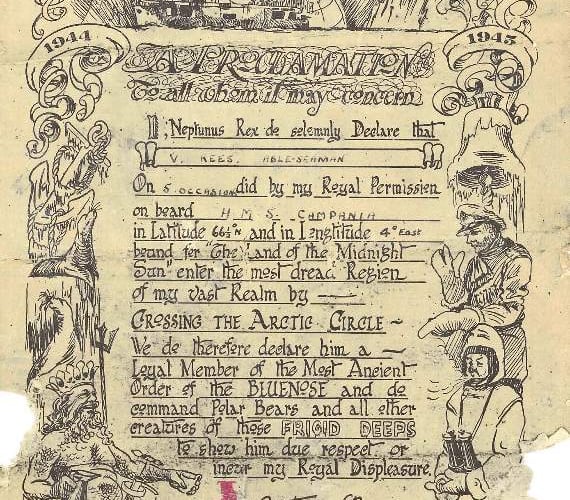 1944
1945
A PROCLAMATION
To all whom it may concern
I, Neptunus Rex do solemnly Declare that
V. REES. ABLE-SEAMAN
On 5 OCCASIONS did by my Royal Permission
on board H M S CAMPANIA
in Latitude 66½°N and in Longtitude 4° East
bound for "The Land of the Midnight
Sun" enter the most dread Region
of my vast Realm by —
CROSSING THE ARCTIC CIRCLE ~
We do therefore declare him a —
Loyal Member of the Most Ancient
Order of the BLUENOSE and do
command Polar Bears and all other
creatures of those FRIGID DEEPS
to show him due respect or
incur my Royal Displeasure.